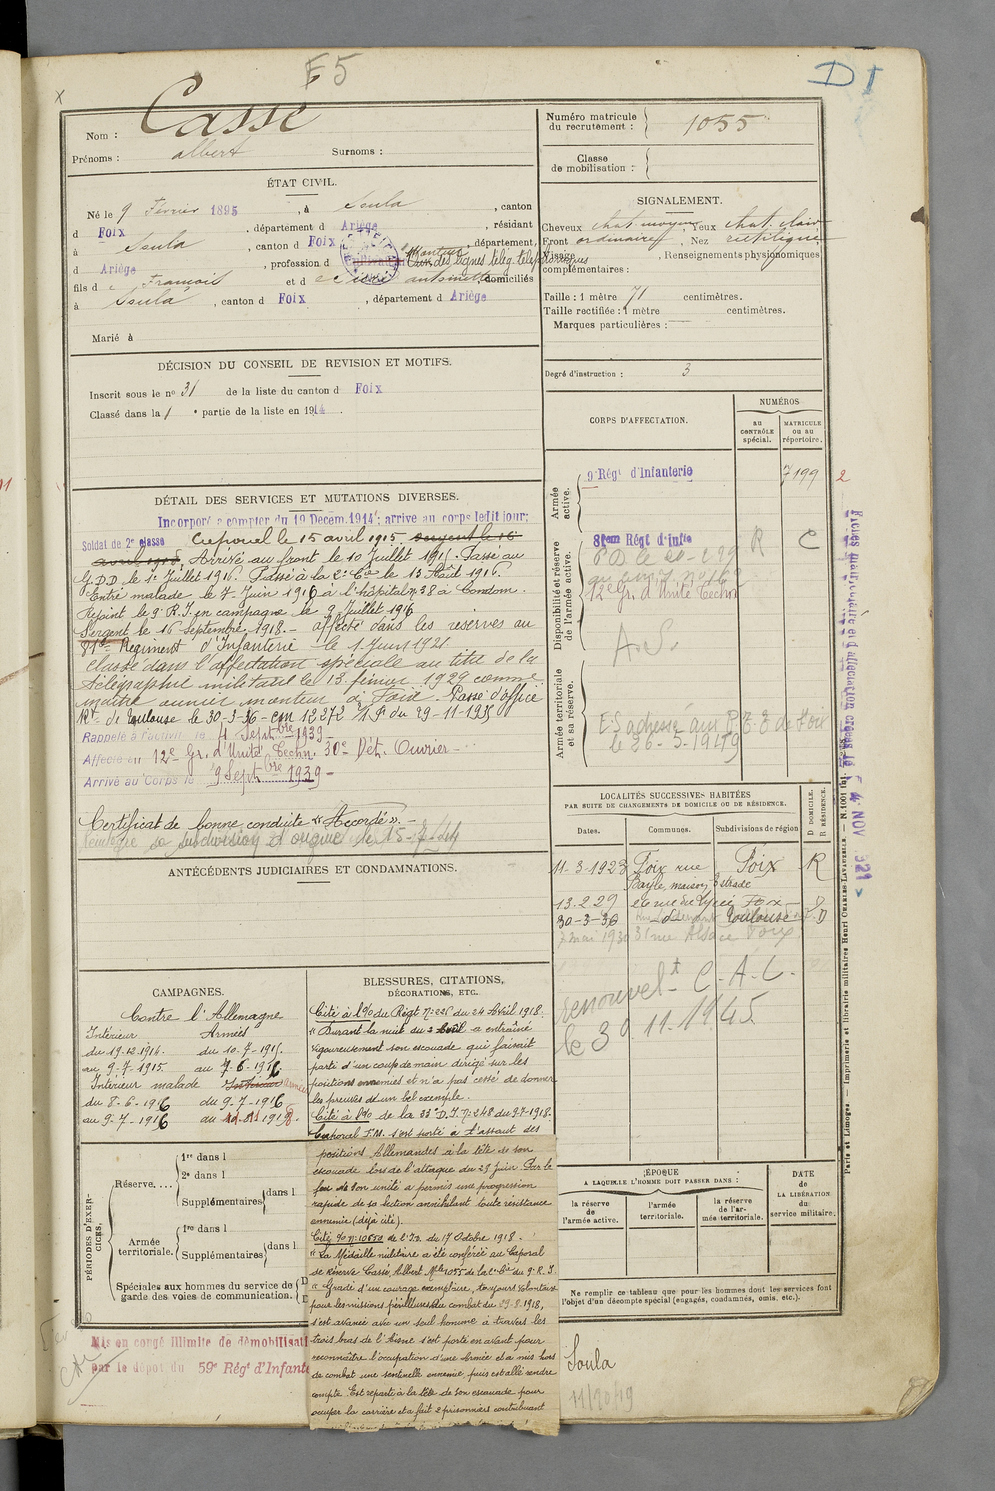 F5
D I
x
Nom : Casse
Prénoms : albert Surnoms :
Numéro matricule du recrutement : 1055
Classe de mobilisation :
ÉTAT CIVIL.
Né le 9 Février 1895, à Soula, canton
d Foix, département d Ariège, résidant
à Soula, canton d Foix, département,
d Ariège, profession d des lignes télég. téléphoniques
fils d e François et d antoinette, domiciliés
à Soula, canton d Foix, département d Ariège
Marié à
SIGNALEMENT.
Cheveux chat. moyen, Yeux chat. clair
Front ordinaire, Nez rectiligne
Visage, Renseignements physionomiques
complémentaires :
Taille : 1 mètre 71 centimètres.
Taille rectifiée : 1 mètre centimètres.
Marques particulières :
Degré d'instruction : 3
DÉCISION DU CONSEIL DE REVISION ET MOTIFS.
Inscrit sous le no 31 de la liste du canton d Foix
Classé dans la 1 e partie de la liste en 1914.
CORPS D'AFFECTATION.
NUMÉROS
AU CONTRÔLE spécial.
MATRICULE ou au répertoire.
Armée active.
9e Régt d'Infanterie 7199
2
Disponibilité et réserve de l'armée active.
81em Régt d'infie R C
12e Gr. d'Unité Techn
A.S.
Armée territoriale et sa réserve.
DÉTAIL DES SERVICES ET MUTATIONS DIVERSES.
Incorporé à compter du 19 Décem. 1914; arrivé au corps ledit jour;
Soldat de 2e classe Caporal le 15 avril 1915. sergent le 16
avril 1918. Arrivé au front le 10 Juillet 1915. Passé au
G.D.D le 1er Juillet 1916. Passé à la 2e Cie le 13 Août 1916.
Entré malade le 7 Juin 1916 à l'hôpital n° 38 à Condom.
Rejoint le 9e R.I. en campagne le 9 Juillet 1916
Sergent le 16 Septembre 1918. - affecté dans les réserves au
81e Régiment d'Infanterie le 1 Juin 1921
Classé dans l'affectation spéciale au titre de la
télégraphie militaire le 13 février 1929 comme
maître ouvrier monteur à Foix - Passé d'office
Rt. de Toulouse le 30-3-36 - cm 12272 1.P. du 29-11-1935
Rappelé à l'activité le 4 Septbre 1939 -
Affecté au 12e Gr. d'Unité Techn. 30e Dét. Ouvrier -
Arrivé au Corps le 9 Septbre 1939 -
Certificat de bonne conduite "Accordé". -
ANTÉCÉDENTS JUDICIAIRES ET CONDAMNATIONS.
LOCALITÉS SUCCESSIVES HABITÉES
PAR SUITE DE CHANGEMENTS DE DOMICILE OU DE RÉSIDENCE.
Dates. Communes. Subdivisions de région D DOMICILE. R RÉSIDENCE.
11-3-1923 Foix rue Foix R
Bayle, maison Estrade
13.2.29 26 rue du Lycée Foix -
30-3-36 Toulouse D
31 rue Alsace Foix
renouvelt C.A.C.
le 30.11.1945
CAMPAGNES.
Contre l'Allemagne
Intérieur Armées
du 19.12.1914. du 10.7-1915.
au 9.7.1915. au 7-6-1916
Intérieur malade Intérieur Armées
du 8-6-1916 du 9-7-1916
au 9-7-1916 au 1918.
BLESSURES, CITATIONS,
DÉCORATIONS, ETC.
Cité à l'O/ du Régt n° 226 du 24 Avril 1918.
"Durant la nuit du 2 Avril a entraîné
vigoureusement son escouade qui faisait
partie d'un coup de main dirigé sur les
positions ennemies et n'a pas cessé de donner
les preuves d'un bel exemple.
Cité à l'O/ de la 33e D.I. n° 248 du 9.7-1918.
Caporal F.M. s'est porté à l'assaut des
positions Allemandes à la tête de son
escouade lors de l'attaque du 29 juin. Par le
feu de son unité a permis une progression
rapide de sa section annihilant toute résistance
ennemie (déjà cité).
Cité O/ n° 10650 de l'I.D. du 17 Octobre 1918.
"La Médaille militaire a été conférée au Caporal
de réserve Casse, Albert, Mle 1055 de la Cie du 9e R.I.
"Gradé d'un courage exemplaire, toujours volontaire
pour les missions périlleuses du combat du 29.8.1918,
s'est avancé avec un seul homme à travers les
trois bras de l'Aisne s'est porté en avant pour
reconnaître l'occupation d'une Armée et a mis hors
de combat une sentinelle ennemie, puis est allé rendre
compte. Est reparti à la tête de son escouade pour
occuper la carrière et a fait 2 prisonniers contribuant
PÉRIODES D'EXERCICES.
Réserve.... 1re dans l
2e dans l
Supplémentaires dans l
Armée territoriale. 1re dans l
Supplémentaires dans l
Spéciales aux hommes du service de garde des voies de communication.
ÉPOQUE
A LAQUELLE L'HOMME DOIT PASSER DANS :
la réserve de l'armée active.
l'armée territoriale.
la réserve de l'armée territoriale.
DATE de LA LIBÉRATION du service militaire.
Ne remplir ce tableau que pour les hommes dont les services font
l'objet d'un décompte spécial (engagés, condamnés, omis, etc.).
Mis en congé illimité de démobilisati
par le dépôt du 59e Régt d'Infante
Soula
11/90/19
Paris et Limoges. — Imprimerie et librairie militaires Henri CHARLES-LAVAUZELLE. — N. 1001